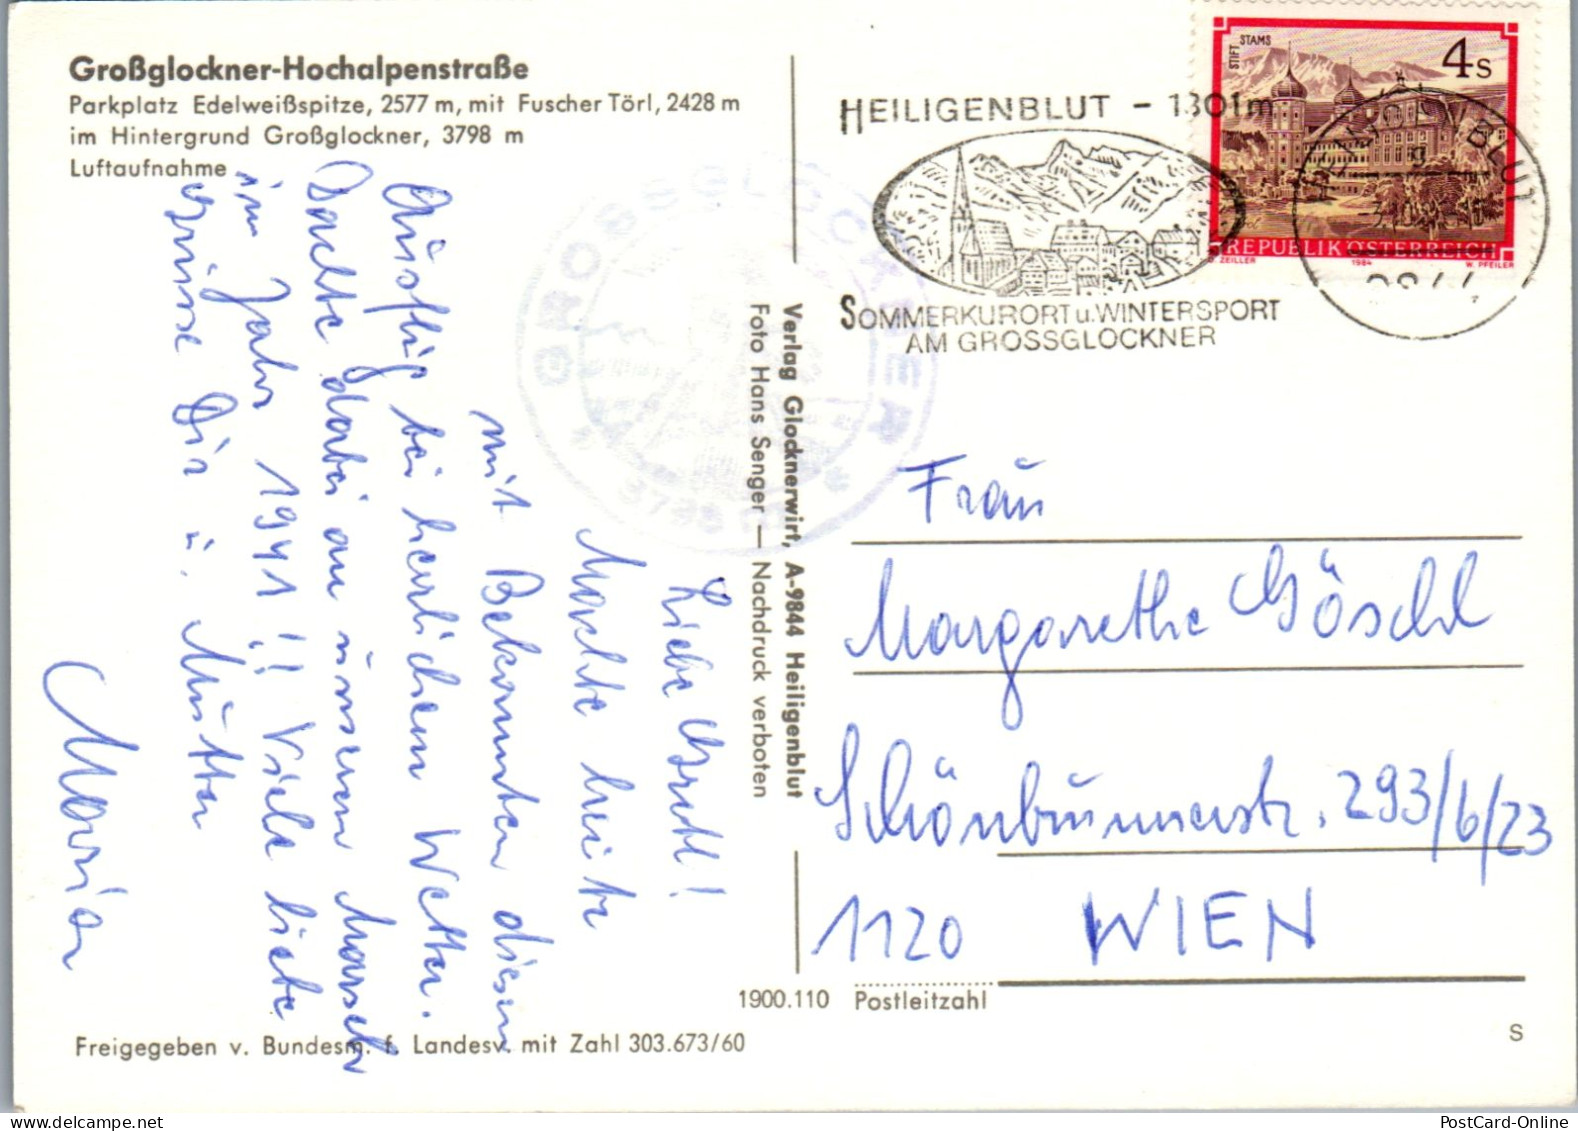 Großglockner-Hochalpenstraße
Parkplatz Edelweißspitze, 2577 m, mit Fuscher Törl, 2428 m
im Hintergrund Großglockner, 3798 m
Luftaufnahme
Liebe Gretl!
Machte heute
mit Bekannten diesen
Ausflug bei herrlichem Wetter.
Dachte dabei an unseren Marsch
im Jahr 1941!! Viele liebe
Grüsse Dir u. Mutter
Marian
GROSSGLOCKNER
3798 m
Verlag Glocknerwirt, A-9844 Heiligenblut
Foto Hans Senger — Nachdruck verboten
HEILIGENBLUT - 1301m
SOMMERKURORT u. WINTERSPORT
AM GROSSGLOCKNER
STIFT STAMS
4 S
REPUBLIK ÖSTERREICH
O. ZEILLER 1984 W. PFEILER
HEILIGENBLUT
9844
Frau
Margarethe Göschl
Schönbrunnerstr. 293/6/23
1120 WIEN
1900.110 Postleitzahl
Freigegeben v. Bundesm. f. Landesv. mit Zahl 303.673/60
S
PostCard-Online